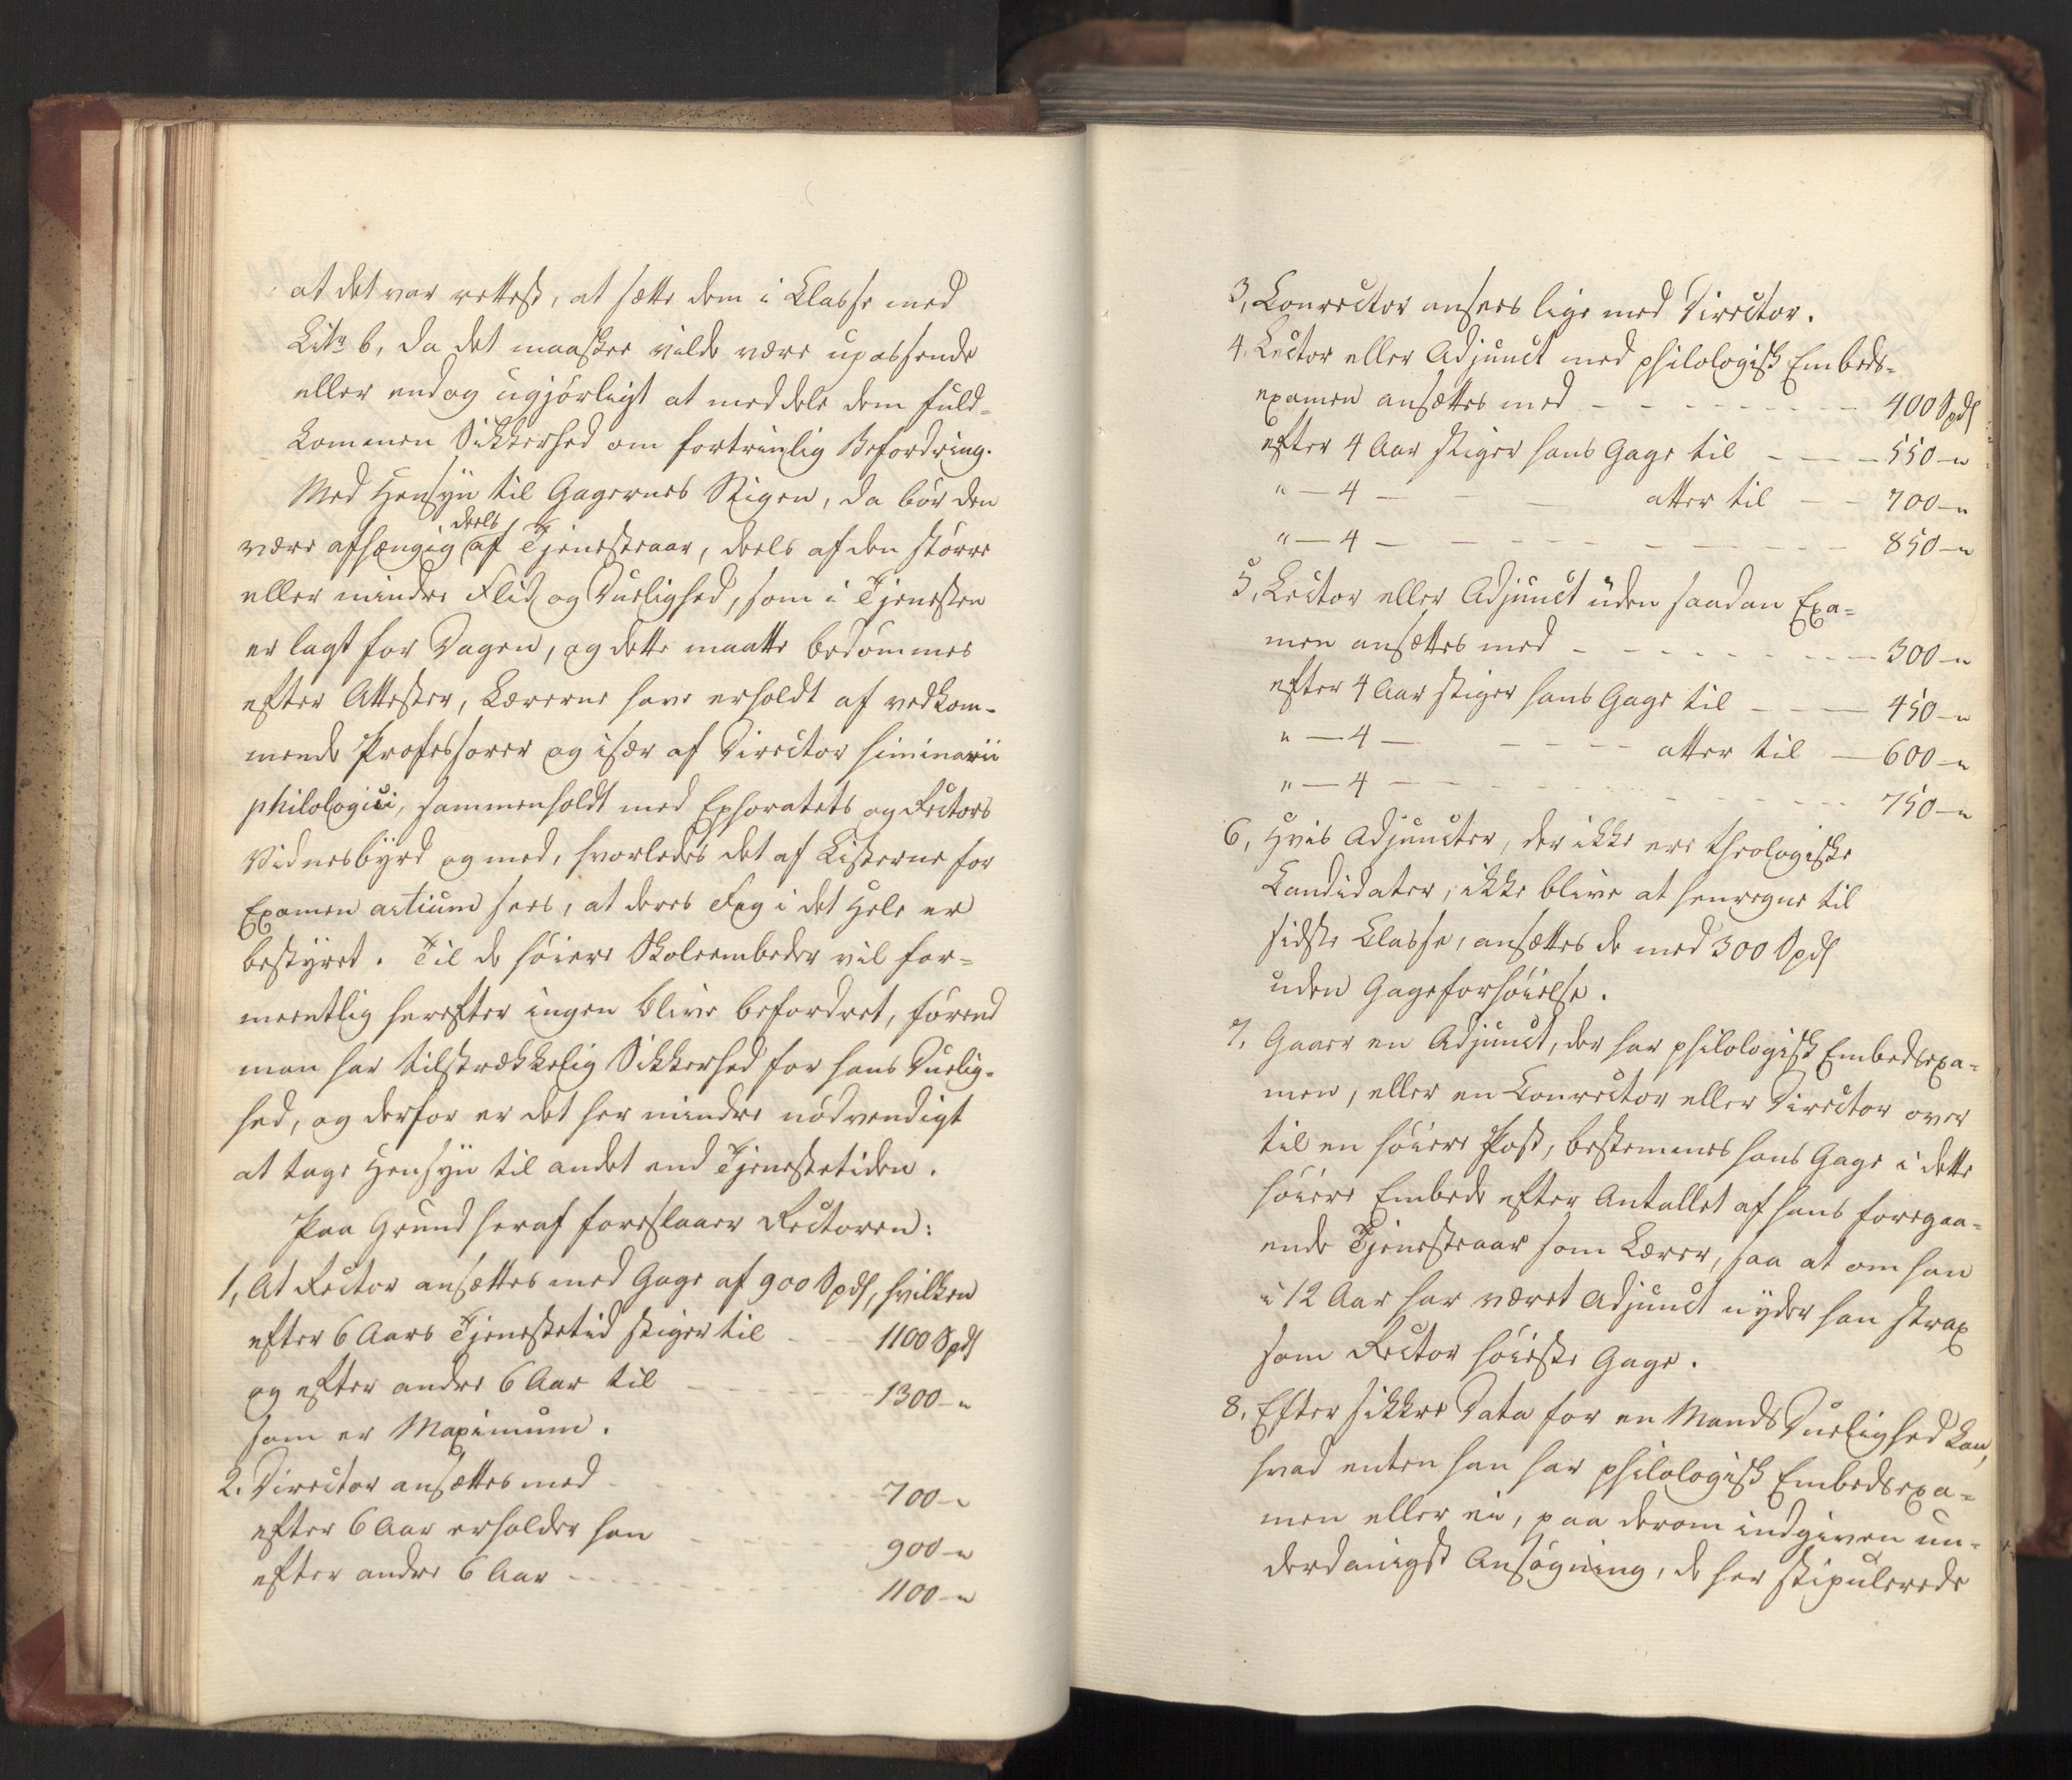 at det var rettest, at sætte dem i Classe med
Litr b, da det maaskee vilde være upassende
eller endog ugjørligt at meddele dem fuld-
kommen Sikkerhed om fortrinlig Befordring.
Med Hensyn til Gagernes Stigen, da bør den
være afhængig deels af Tjenesteaar, deels af den større
eller mindre Flid og Duelighed, som i Tjenesten
er lagt for Dagen, og dette maatte bedømmes
efter Attester, Lærerne have erholdt af vedkom-
mende Professorer og især af Director siminarii
philologici, sammenholdt med Ephoratets og Rectors
Vidnesbyrd og med, hvorledes det af Listerne for
Examen artium sees, at deres Fag i det Hele er
bestyret. Til de høiere Skoleembeder vil for-
meentlig herefter ingen blive befordret, førend
man har tilstrækkelig Sikkerhed for hans Duelig-
hed, og derfor er det her mindre nødvendigt
at tage Hensyn til andet end Tjenestetiden.
Paa Grund heraf foreslaaer Rectoren:
1, At Rector ansættes med Gage af 900 Spd, hvilken
efter 6 Aars Tjenestetid stiger til - - 1100 Spd
og efter andre 6 Aar til - - - - 1300 - "
som er Maximum.
2. Director ansættes med - - - - 700 - "
efter 6 Aar erholder han - - - - 900 - "
efter andre 6 Aar - - - - 1100 - "
3, Conrector ansees lige med Director.
4, Lector eller Adjunct med philologisk Embeds-
examen ansættes med - - - - 400 Spd
efter 4 Aar stiger hans Gage til - - - 550 - "
" - 4 - - - atter til - - 700 - "
" - 4 - - - - - - 850 - "
5, Lector eller Adjunct uden saadan Exa-
men ansættes med - - - - 300 - "
efter 4 Aar stiger hans Gage til - - - 450 - "
" - 4 - - - - atter til - 600 - "
" - 4 - - - - - - 750 - "
6, Hvis Adjuncter, der ikke ere theologiske
Candidater, ikke blive at henregne til
sidste Classe, ansættes de med 300 Spd
uden Gageforhøielse.
7, Gaaer en Adjunct, der har philologisk Embedsexa-
men, eller en Conrector eller Director over
til en høiere Post, bestemmes hans Gage i dette
høiere Embede efter Antallet af hans foregaa-
ende Tjenesteaar som Lærer, saa at om han
i 12 Aar har været Adjunct nyder han strax
som Rector høieste Gage.
8, Efter sikkre Data for en Mands Duelighed kan,
hvad enten han har philologisk Embedsexa-
men eller ei, paa derom indgiven un-
derdanigst Ansøgning, de her stipulerede